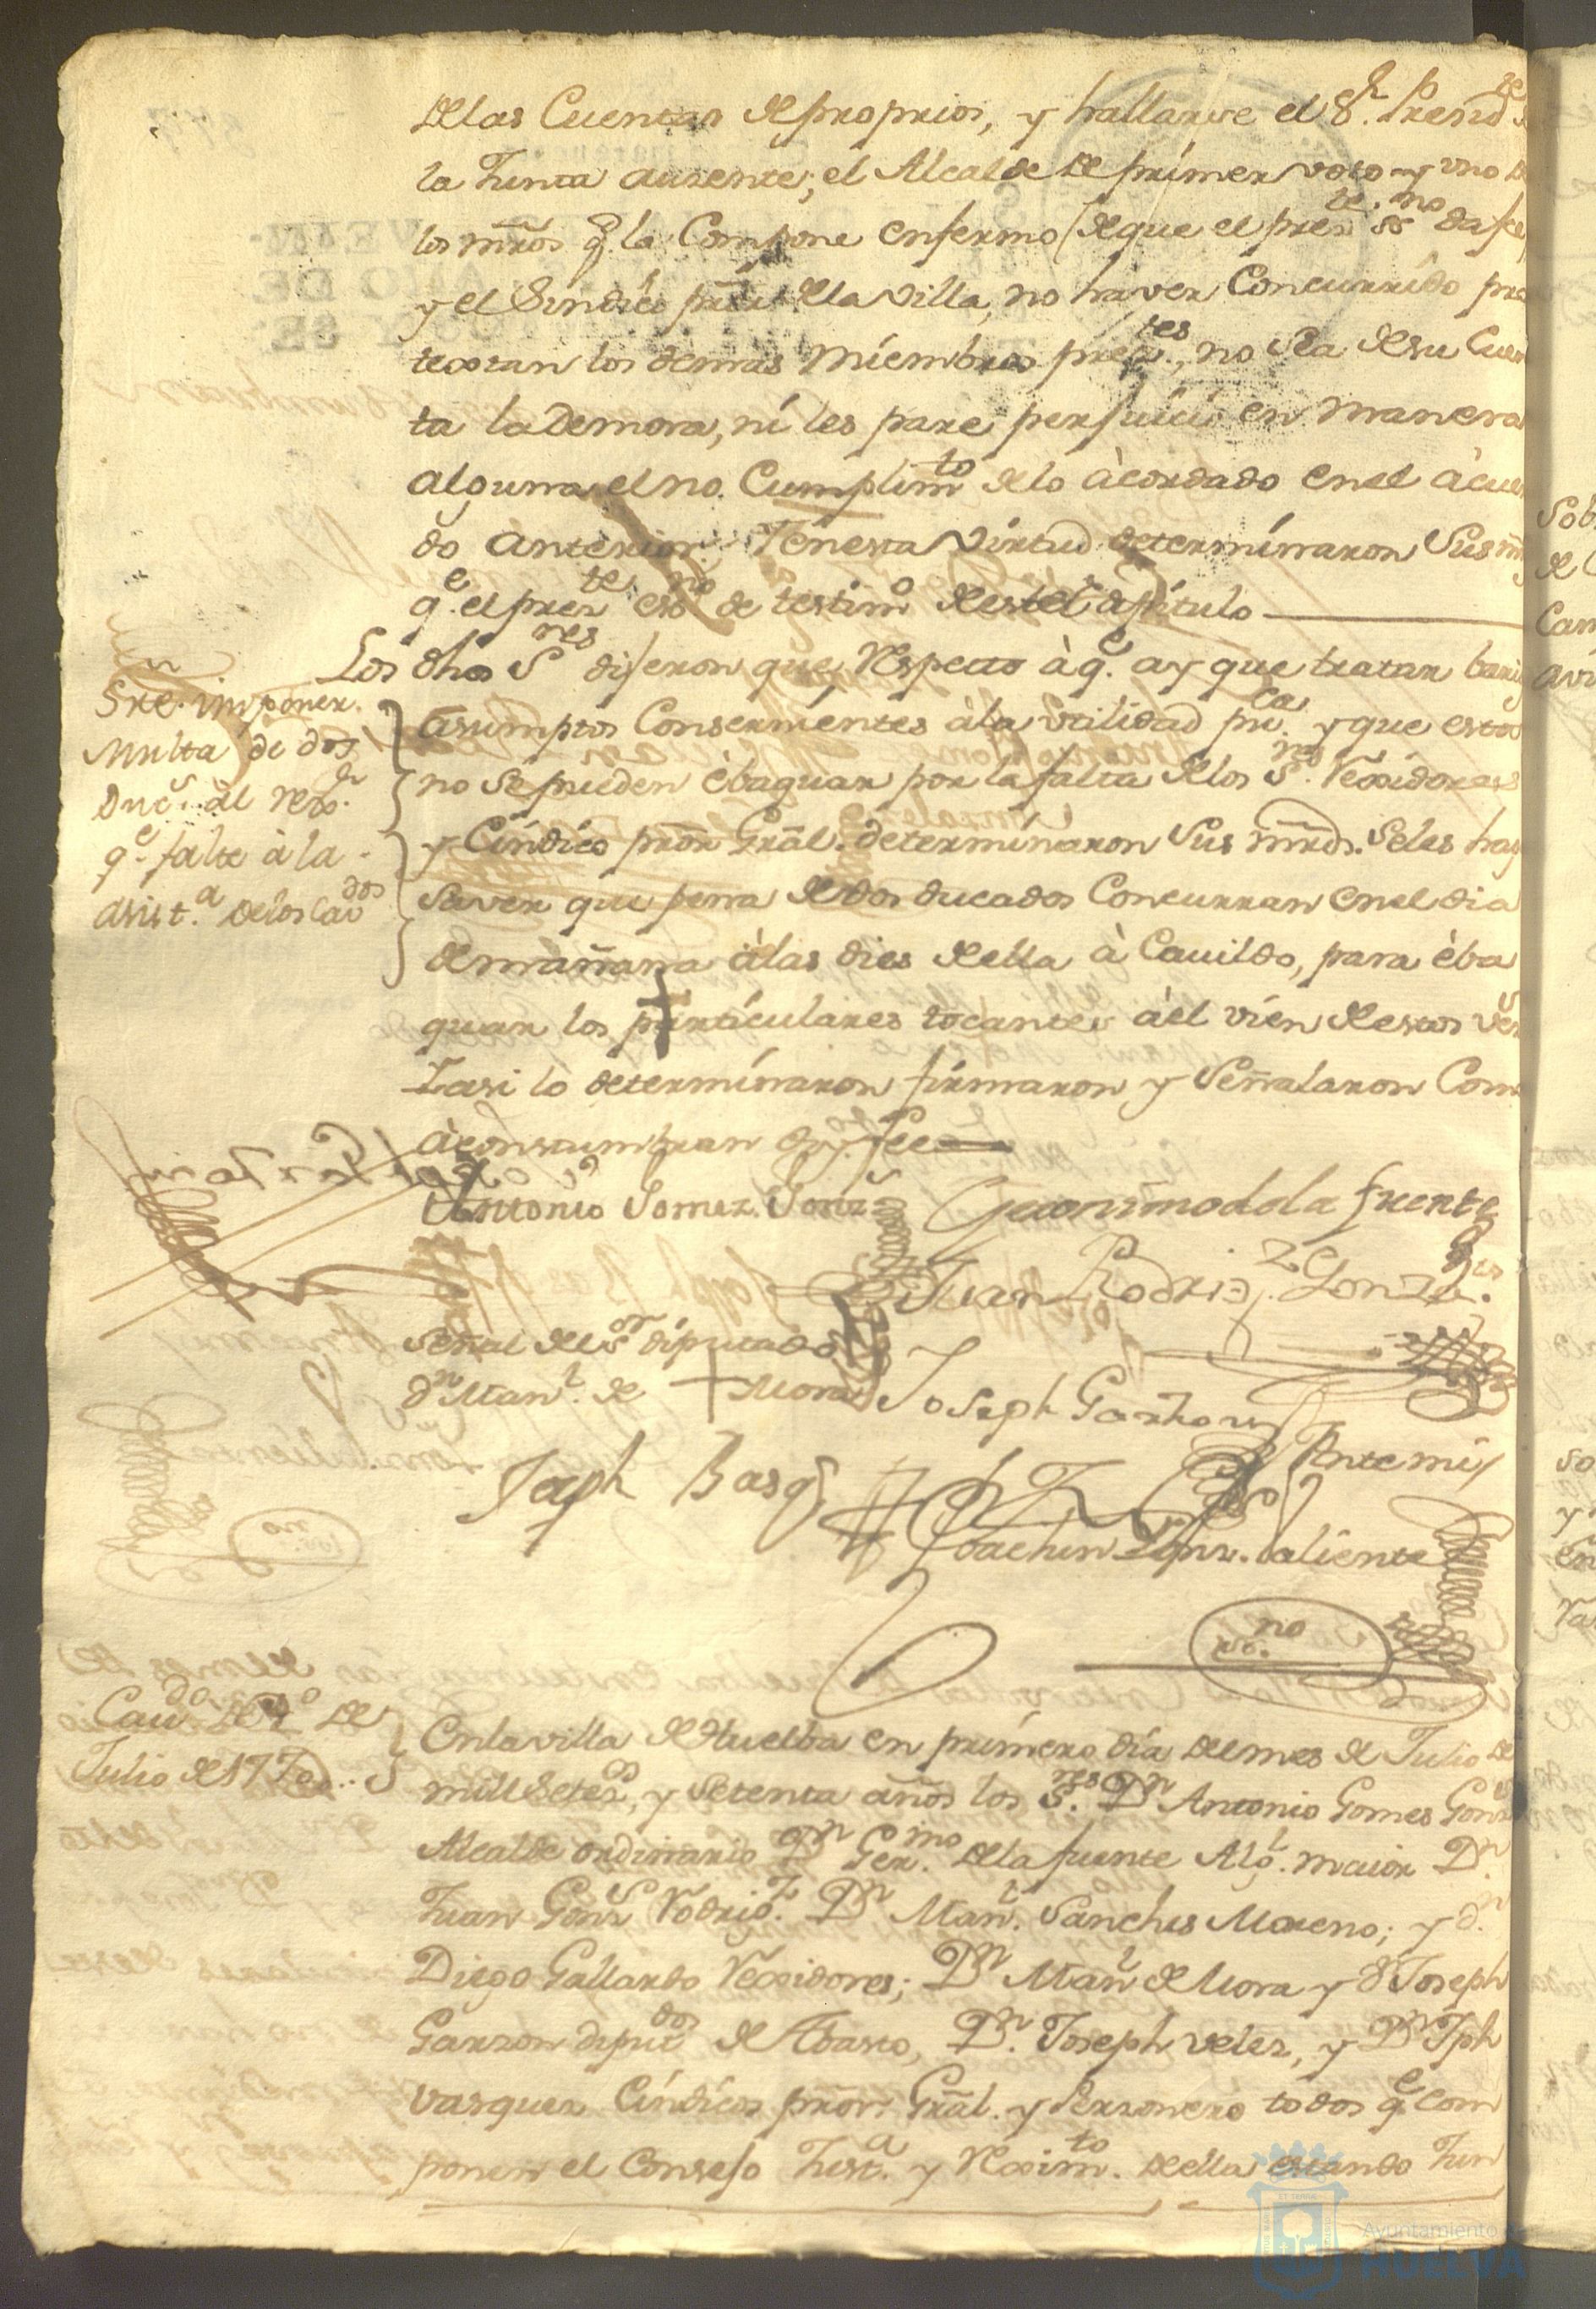 de las Cuentas de proprios, y hallarse el Sr. Presidte de
la Junta ausente; el Alcalde de primer voto y uno de
los mrõs q.e la Compone enfermo (de que el preste ssno da fee)
y el Sindico pror. de la villa, no haver Concurrido pro
textaran los demas Miembros prestes, no sea de su Cuen
ta la Demora, ni les pare perjuicio en manera
alguna el no Cumplimto de lo àcordado en el àcuer
do anterior, Yenesta Virtud determinaron Sus md
q.e el preste esno de testimo de este Capitulo
Los dhos Sres dijeron que, Respecto à q.e ay que tratar barios
Sre. imponer.
Multa de dos
Ducs. al rexor
q.e falte à la
asist.a de los Cavdos
asumptos Consernientes àla utilidad puca. y que estos
no se pueden èbaquar por la falta de los Sres. Rexidores
y Cindico pror Gral. determinaron Sus mrds. Seles haga
saver que pena de dos ducados Concurran en el dia
de mañana àlas dies de ella à Cauildo, para èba
quar los particulares tocantes àèl vien de estos veso
Y asi lo determinaron firmaron y Señalaron Como
àcostumbran doy fee
Antonio Gomez Gonz
Geronimo de la fuente
Juan Rodrigz Gonzs.
Señal del Sor diputado
dn Manl. de + Mora
Joseph Garzon
Joseph Basq
Antemi
Joachin Valiente
sno.
Cavdo de 1o de
Julio de 1770
En la villa de Huelba en primero dia del mes de Julio de
mill Setezos, y Setenta años los Sres. Dn Antonio Gomes Gonz
Alcalde ordinario Dn Germo. de la fuente Algl. maior Dn.
Juan Gonz Rodrigz. Dn Manl. Sanches Moreno; y dn.
Diego Gallardo Rexidores; Dn Manl de Mora y dn Joseph
Garzon diputdos de Abasto, Dn. Joseph velez, y Dn Jph
vasquez Cindicos pror. Gral. y Personero todos q.e com
ponen el Consejo Just.a y Reximto. de ella estando Jun
Ayuntamiento de
HUELVA